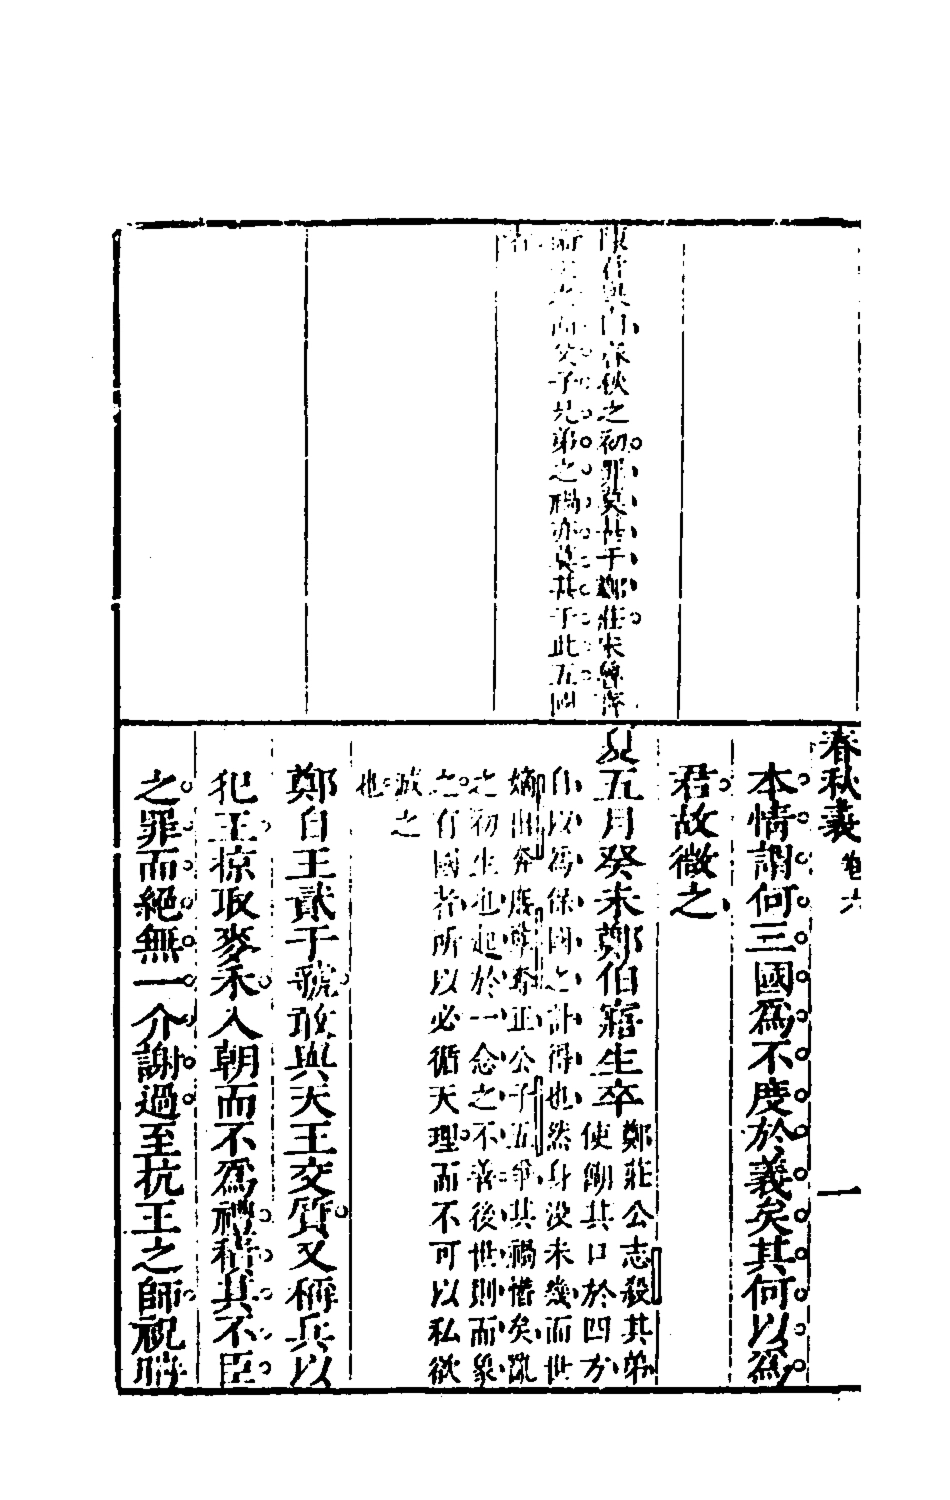 春秋義 卷六 一
本情謂何三國爲不度於義矣其何以爲
君故微之
夏五月癸未鄭伯寤生卒
鄭莊公志殺其弟
使餬其口於四方
自以爲保國之計得也然身没未幾而世
嫡出奔庶孽奪正公子五爭其禍憯矣亂
之初生也起於一念之不善後世則而象
之有國者所以必循天理而不可以私欲
滅之
也
鄭自王貳于虢敢與天王交質又稱兵以
犯王掠取麥禾入朝而不爲禮積其不臣
之罪而絕無一介謝過至抗王之師祝聃
與曰春秋之初罪莫甚于鄭莊宋魯
而父子兄弟之禍亦莫甚于此五國